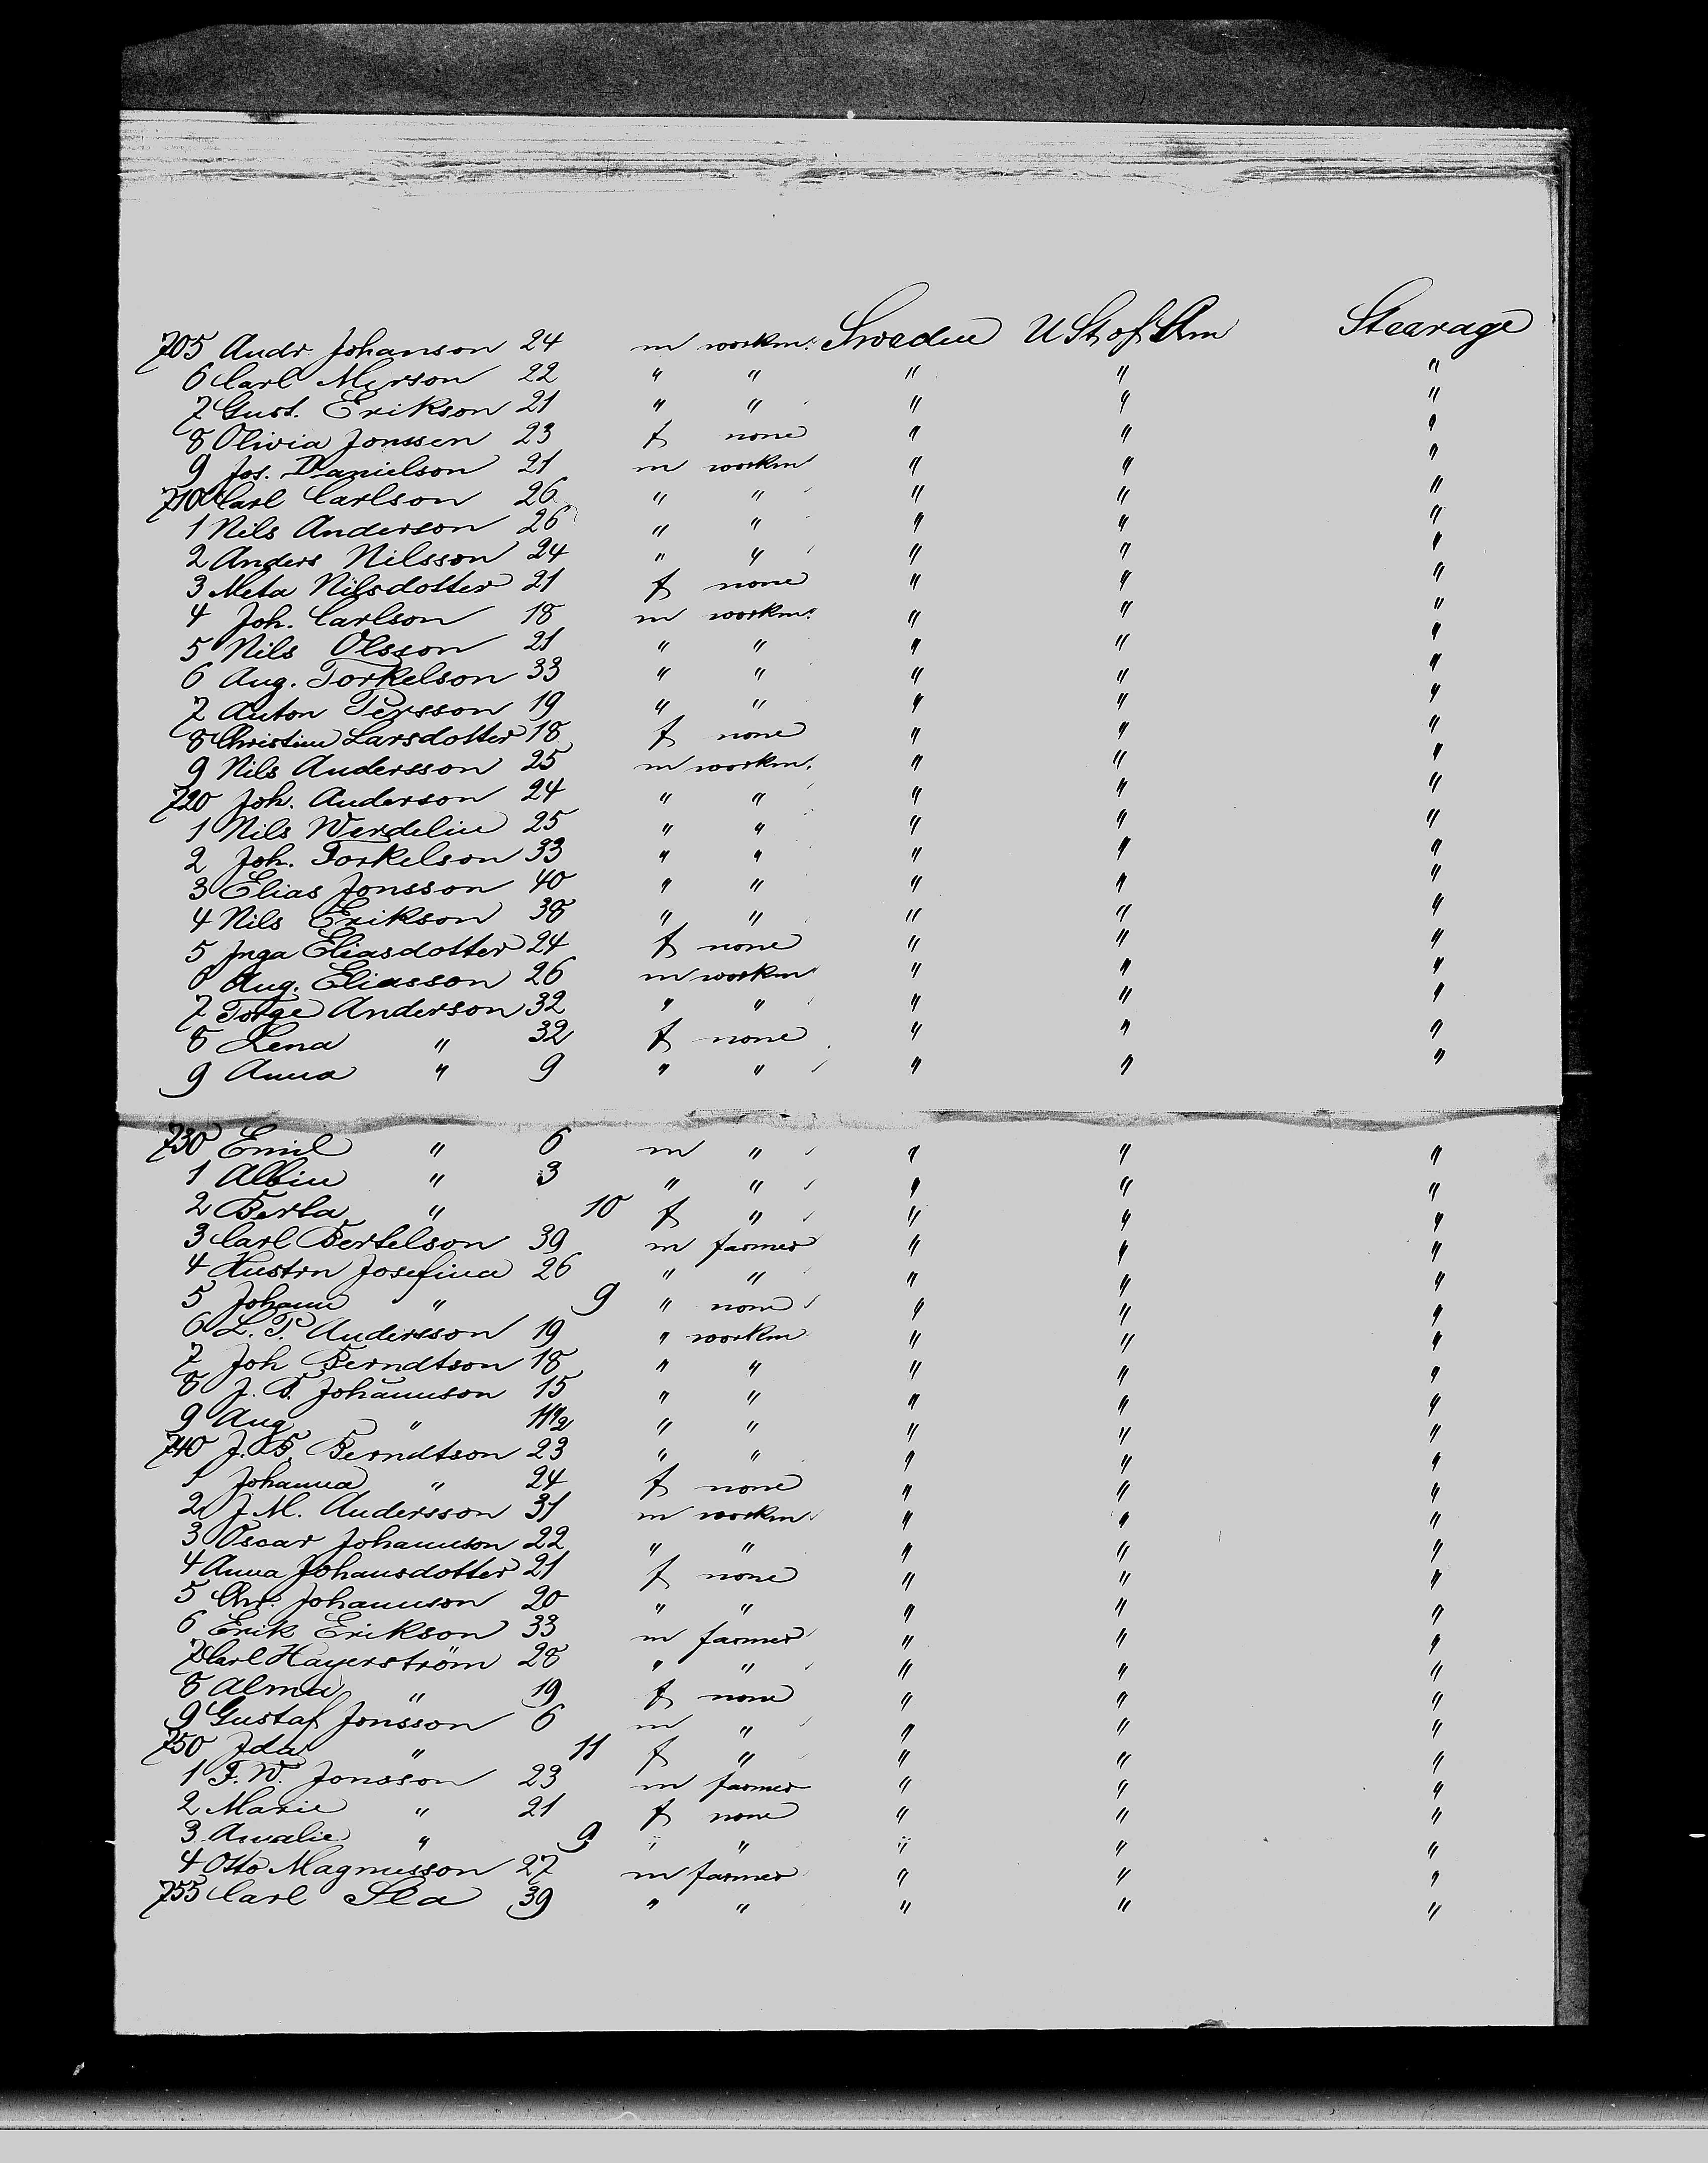 705 Andr. Johanson 24 m workm. Sweden U St of Am Stearage
6 Carl Merson 22 " " " " "
7 Gust. Erikson 21 " " " " "
8 Olivia Jonssen 23 f none " " "
9 Jos. Danielson 21 m workm " " "
710 Carl Carlson 26 " " " " "
1 Nils Anderson 26 " " " " "
2 Anders Nilsson 24 " " " " "
3 Meta Nilsdotter 21 f none " " "
4 Joh. Carlson 18 m workm. " " "
5 Nils Olsson 21 " " " " "
6 Aug. Torkelson 33 " " " " "
7 Anton Persson 19 " " " " "
8 Christine Larsdotter 18 f none " " "
9 Nils Andersson 25 m workm. " " "
720 Joh. Anderson 24 " " " " "
1 Nils Werdelin 25 " " " " "
2 Joh. Torkelson 33 " " " " "
3 Elias Jonsson 40 " " " " "
4 Nils Erikson 38 " " " " "
5 Inga Eliasdotter 24 f none " " "
6 Aug. Eliasson 26 m workm " " "
7 Torge Anderson 32 " " " " "
8 Lena " 32 f none " " "
9 Anna " 9 " " " " "
730 Emil " 6 m " " " "
1 Albin " 3 " " " " "
2 Berta " 10 f " " " "
3 Carl Bertelson 39 m farmer " " "
4 Hustrn Josefina 26 " " " " "
5 Johann " 9 " none " " "
6 L. P. Andersson 19 " workm " " "
7 Joh Berndtson 18 " " " " "
8 J. B. Johannson 15 " " " " "
9 Aug " 11 1/2 " " " " "
740 J. B. Berndtson 23 " " " " "
1 Johanna " 24 f none " " "
2 J. M. Andersson 31 m workm " " "
3 Oscar Johannson 22 " " " " "
4 Anna Johansdotter 21 f none " " "
5 Chr. Johannson 20 " " " " "
6 Erik Erikson 33 m farmer " " "
7 Carl Hayerström 28 " " " " "
8 Alma " 19 f none " " "
9 Gustaf Jonsson 6 m " " " "
750 Ida " 11 f " " " "
1 F. W. Jonsson 23 m farmer " " "
2 Marie " 21 f none " " "
3 Amalie " 9 " " " " "
4 Otto Magnusson 27 m farmer " " "
755 Carl Sla 39 " " " " "